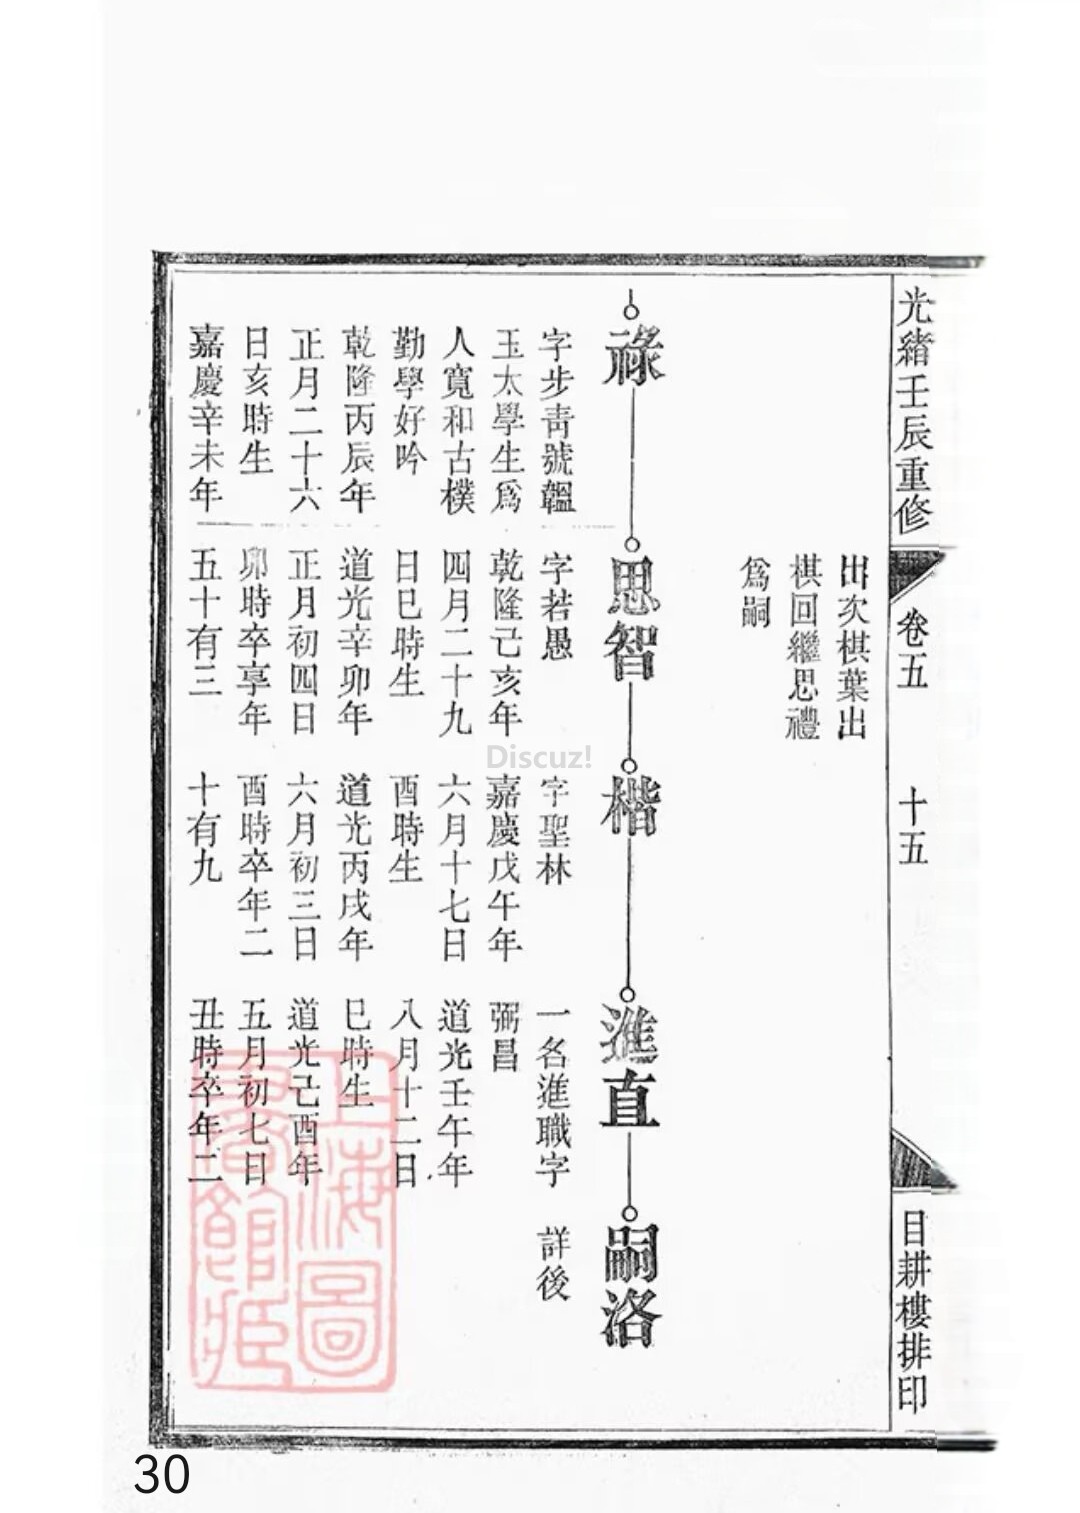 光緒壬辰重修
卷五
十五
目耕樓排印
出次棋葉出
棋回繼思禮
爲嗣
祿
字步青號韞
玉太學生爲
人寬和古樸
勤學好吟
乾隆丙辰年
正月二十六
日亥時生
嘉慶辛未年
思智
字若愚
乾隆己亥年
四月二十九
日巳時生
道光辛卯年
正月初四日
卯時卒享年
五十有三
楷
字聖林
嘉慶戊午年
六月十七日
酉時生
道光丙戌年
六月初三日
酉時卒年二
十有九
進直
一名進職字
弼昌
道光壬午年
八月十二日
巳時生
道光己酉年
五月初七日
丑時卒年二
嗣洛
詳後
上海圖
書館藏
Discuz!
30